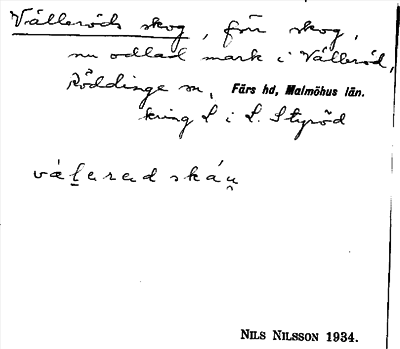 Vålleröds skog, förr skog,
nu odlad mark i Vålleröd,
Röddinge sn, Färs hd, Malmöhus län.
kring L i L. Styröd
våḻarad skáu̯
NILS NILSSON 1934.